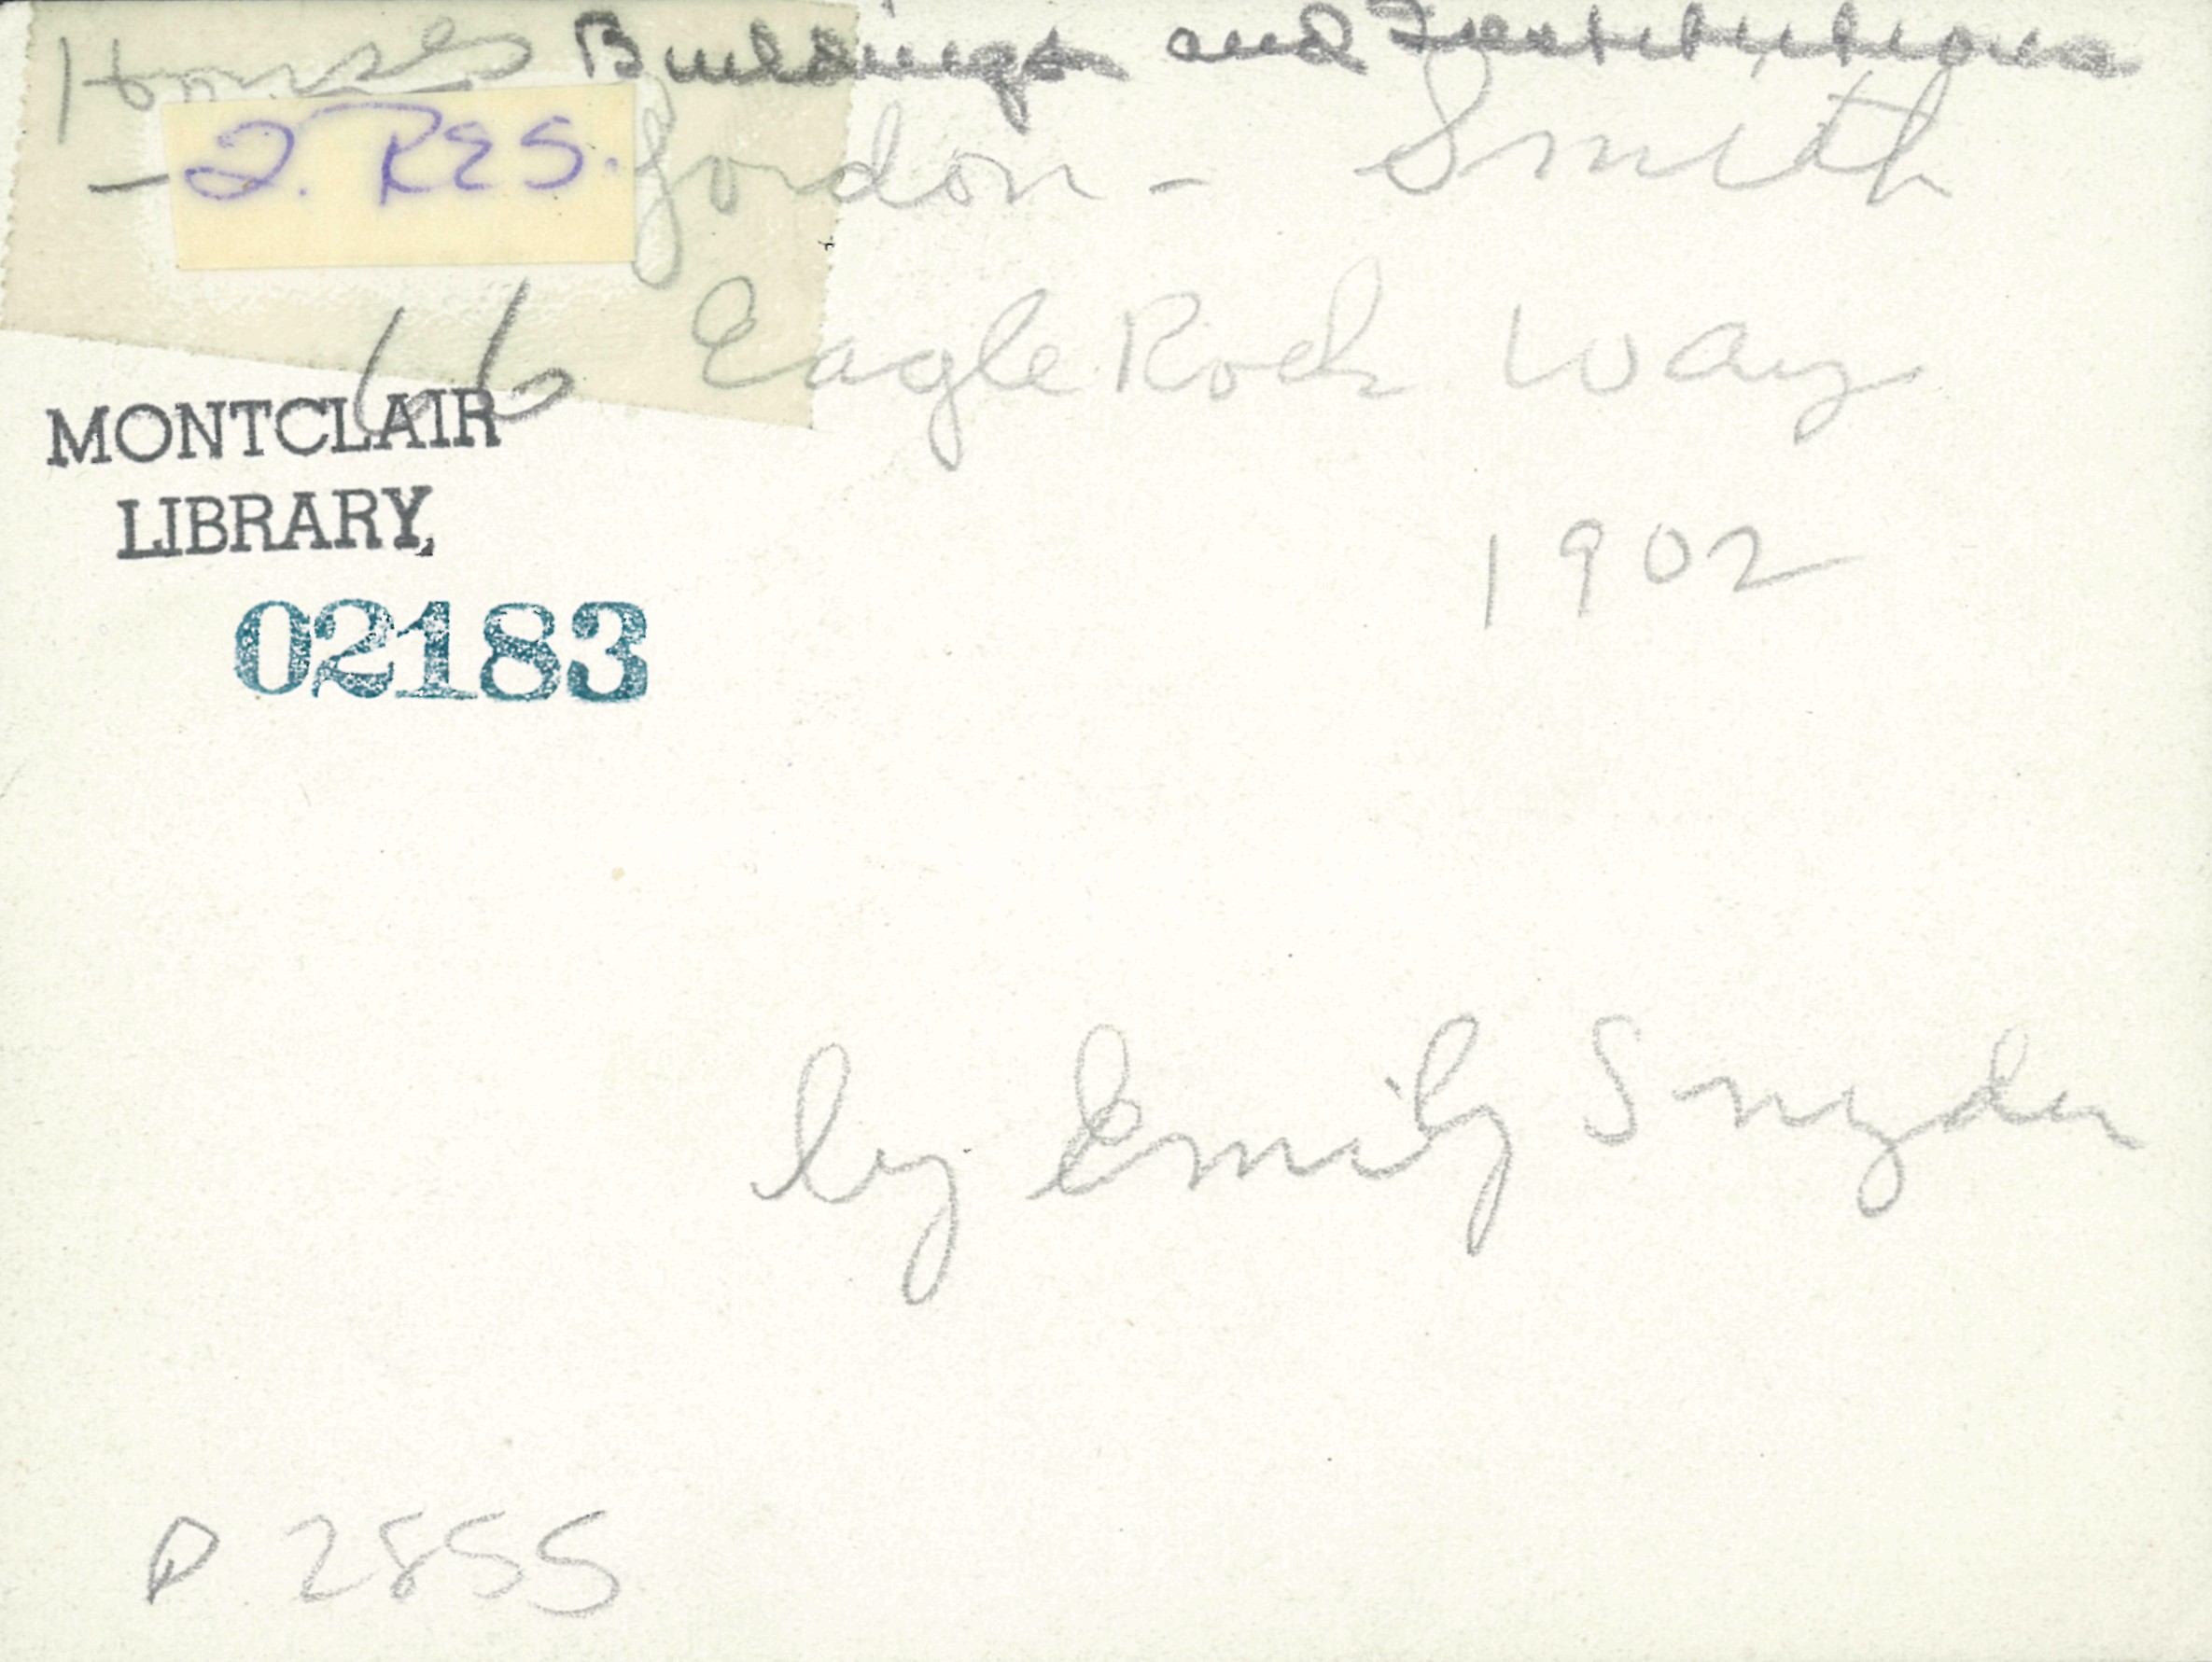 Houses Buildings and Institutions
— 2. RES. Gordon - Smith
66 Eagle Rock Way
MONTCLAIR
LIBRARY,
1902
02183
by Emily Snyder
P 2855